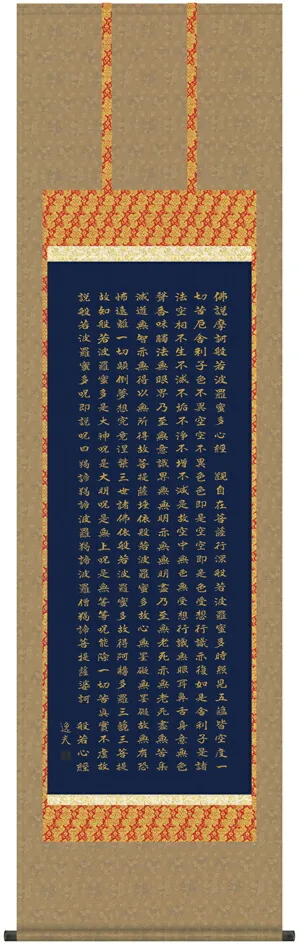 佛説摩訶般若波羅蜜多心經　觀自在菩薩行深般若波羅蜜多時照見五蘊皆空度一
切苦厄舍利子色不異空空不異色色即是空空即是色受想行識亦復如是舍利子是諸
法空相不生不滅不垢不淨不增不減是故空中無色無受想行識無眼耳鼻舌身意無色
聲香味觸法無眼界乃至無意識界無無明亦無無明盡乃至無老死亦無老死盡無苦集
滅道無智亦無得以無所得故菩提薩埵依般若波羅蜜多故心無罣礙無罣礙故無有恐
怖遠離一切顛倒夢想究竟涅槃三世諸佛依般若波羅蜜多故得阿耨多羅三藐三菩提
故知般若波羅蜜多是大神呪是大明呪是無上呪是無等等呪能除一切苦真實不虛故
説般若波羅蜜多呪即説呪曰羯諦羯諦波羅羯諦波羅僧羯諦菩提薩婆訶　般若心經
逸天